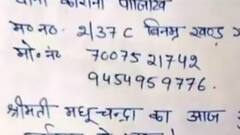 म० न० 2/37 C विनम्र खण्ड
मो० नं० 7007521742
9454959776.
श्रीमती मधू चन्द्रा का आज